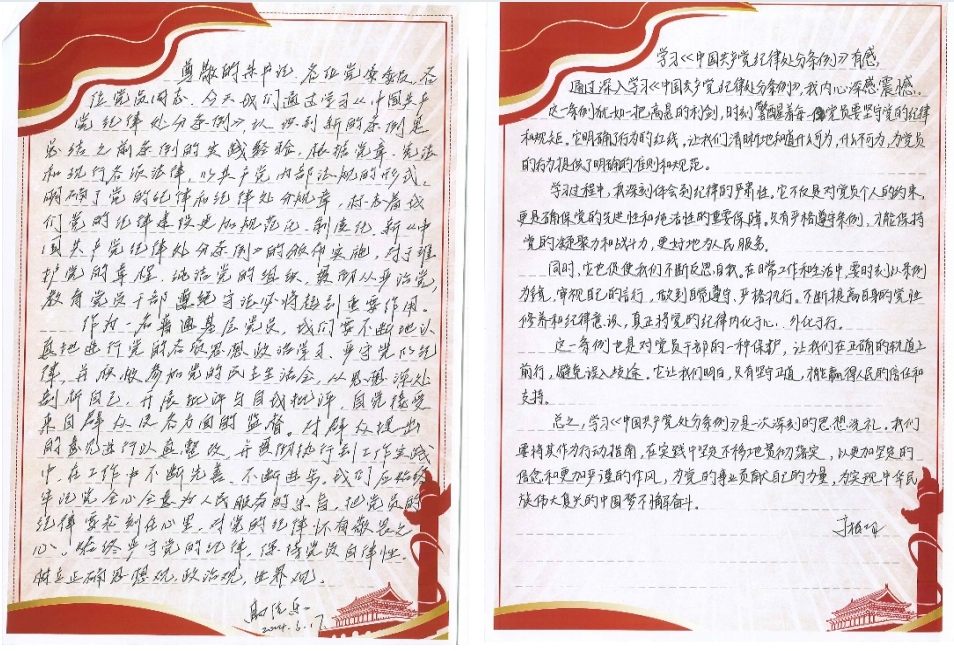 尊敬的朱书记、各位党委委员、各
位党员同志，今天我们通过学习《中国共产
党纪律处分条例》，认识到新的条例是
总结之前条例的实践经验，根据党章、宪法
和现行各项法律，以共产党内部法规的形式，
明确了党的纪律和纪律处分规章，标志着我
们党的纪律建设更加规范化、制度化，新《中
国共产党纪律处分条例》的颁布实施，对于维
护党的章程、纯洁党的组织、贯彻从严治党，
教育党员干部遵纪守法必将起到重要作用。
作为一名普通基层党员，我们要不断地认
真地进行党的各项思想政治学习，严守党的纪
律，并积极参加党的民主生活会，从思想深处
剖析自己，开展批评与自我批评，自觉接受
来自群众及各方面的监督。对群众提出
的意见进行认真整改，并贯彻执行到工作实践
中，在工作中不断完善、不断进步，我们应始终
牢记党全心全意为人民服务的宗旨，把党员的
纪律要松刻在心里，对党的纪律怀有敬畏之
心，始终严守党的纪律，保持党员自律性。
树立正确思想观、政治观，世界观。
2024.6.17
学习《中国共产党纪律处分条例》有感
通过深入学习《中国共产党纪律处分条例》，我内心深感震撼。
这一条例犹如一把高悬的利剑，时刻警醒着每一位党员要坚守党的纪律
和规矩。它明确了行为的红线，让我们清晰地知道什么可为，什么不可为，为党员
的行为提供了明确的准则和规范。
学习过程中，我深刻体会到纪律的严肃性，它不仅是对党员个人的约束，
更是确保党的先进性和纯洁性的重要保障。只有严格遵守条例，才能保持
党的凝聚力和战斗力，更好地为人民服务。
同时，它也促使我们不断反思自我。在日常工作和生活中，要时刻以条例
为镜，审视自己的言行，做到自觉遵守、严格执行。不断提高自身的党性
修养和纪律意识，真正将党的纪律内化于心、外化于行。
这一条例也是对党员干部的一种保护，让我们在正确的轨道上
前行，避免误入歧途。它让我们明白，只有坚守正道，才能赢得人民的信任和
支持。
总之，学习《中国共产党处分条例》是一次深刻的思想洗礼。我们
要将其作为行动指南，在实践中坚定不移地贯彻落实，以更加坚定的
信念和更加严谨的作风，为党的事业贡献自己的力量，为实现中华民
族伟大复兴的中国梦不懈奋斗。